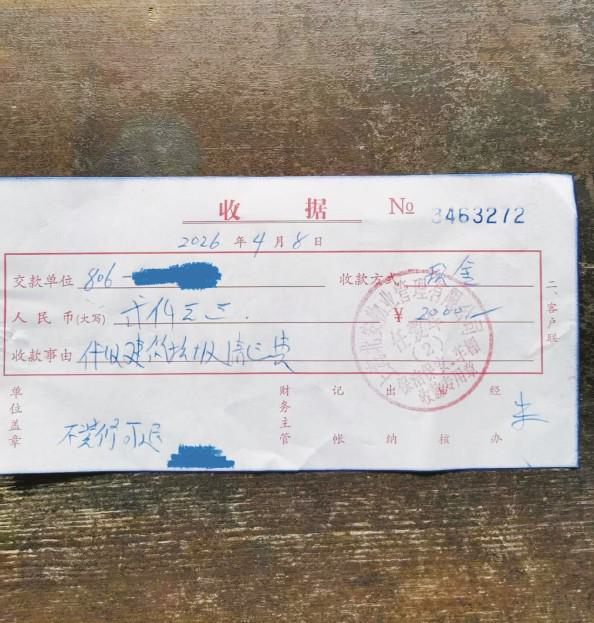 收 据 № 3463272
2026 年 4 月 8 日
交款单位 806 收款方式 现金
人民币(大写) 贰仟元正. ¥ 2000/—
收款事由 代收建筑垃圾清运费
二、客户联
单位盖章 财务主管 记帐 出纳 审核 经办 朱
不装修可退
物业管理有限公司
(2)
收款专用章